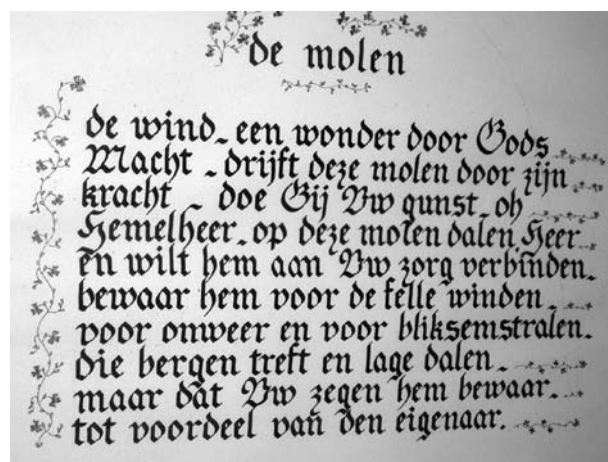 de molen
de wind - een wonder door Gods
Macht - drijft deze molen door zijn
kracht - doe Gij Uw gunst - oh
Hemelheer - op deze molen dalen Heer
en wilt hem aan Uw zorg verbinden -
bewaar hem voor de felle winden -
voor onweer en voor bliksemstralen -
die bergen treft en lage dalen -
maar dat Uw zegen hem bewaar -
tot voordeel van den eigenaar.